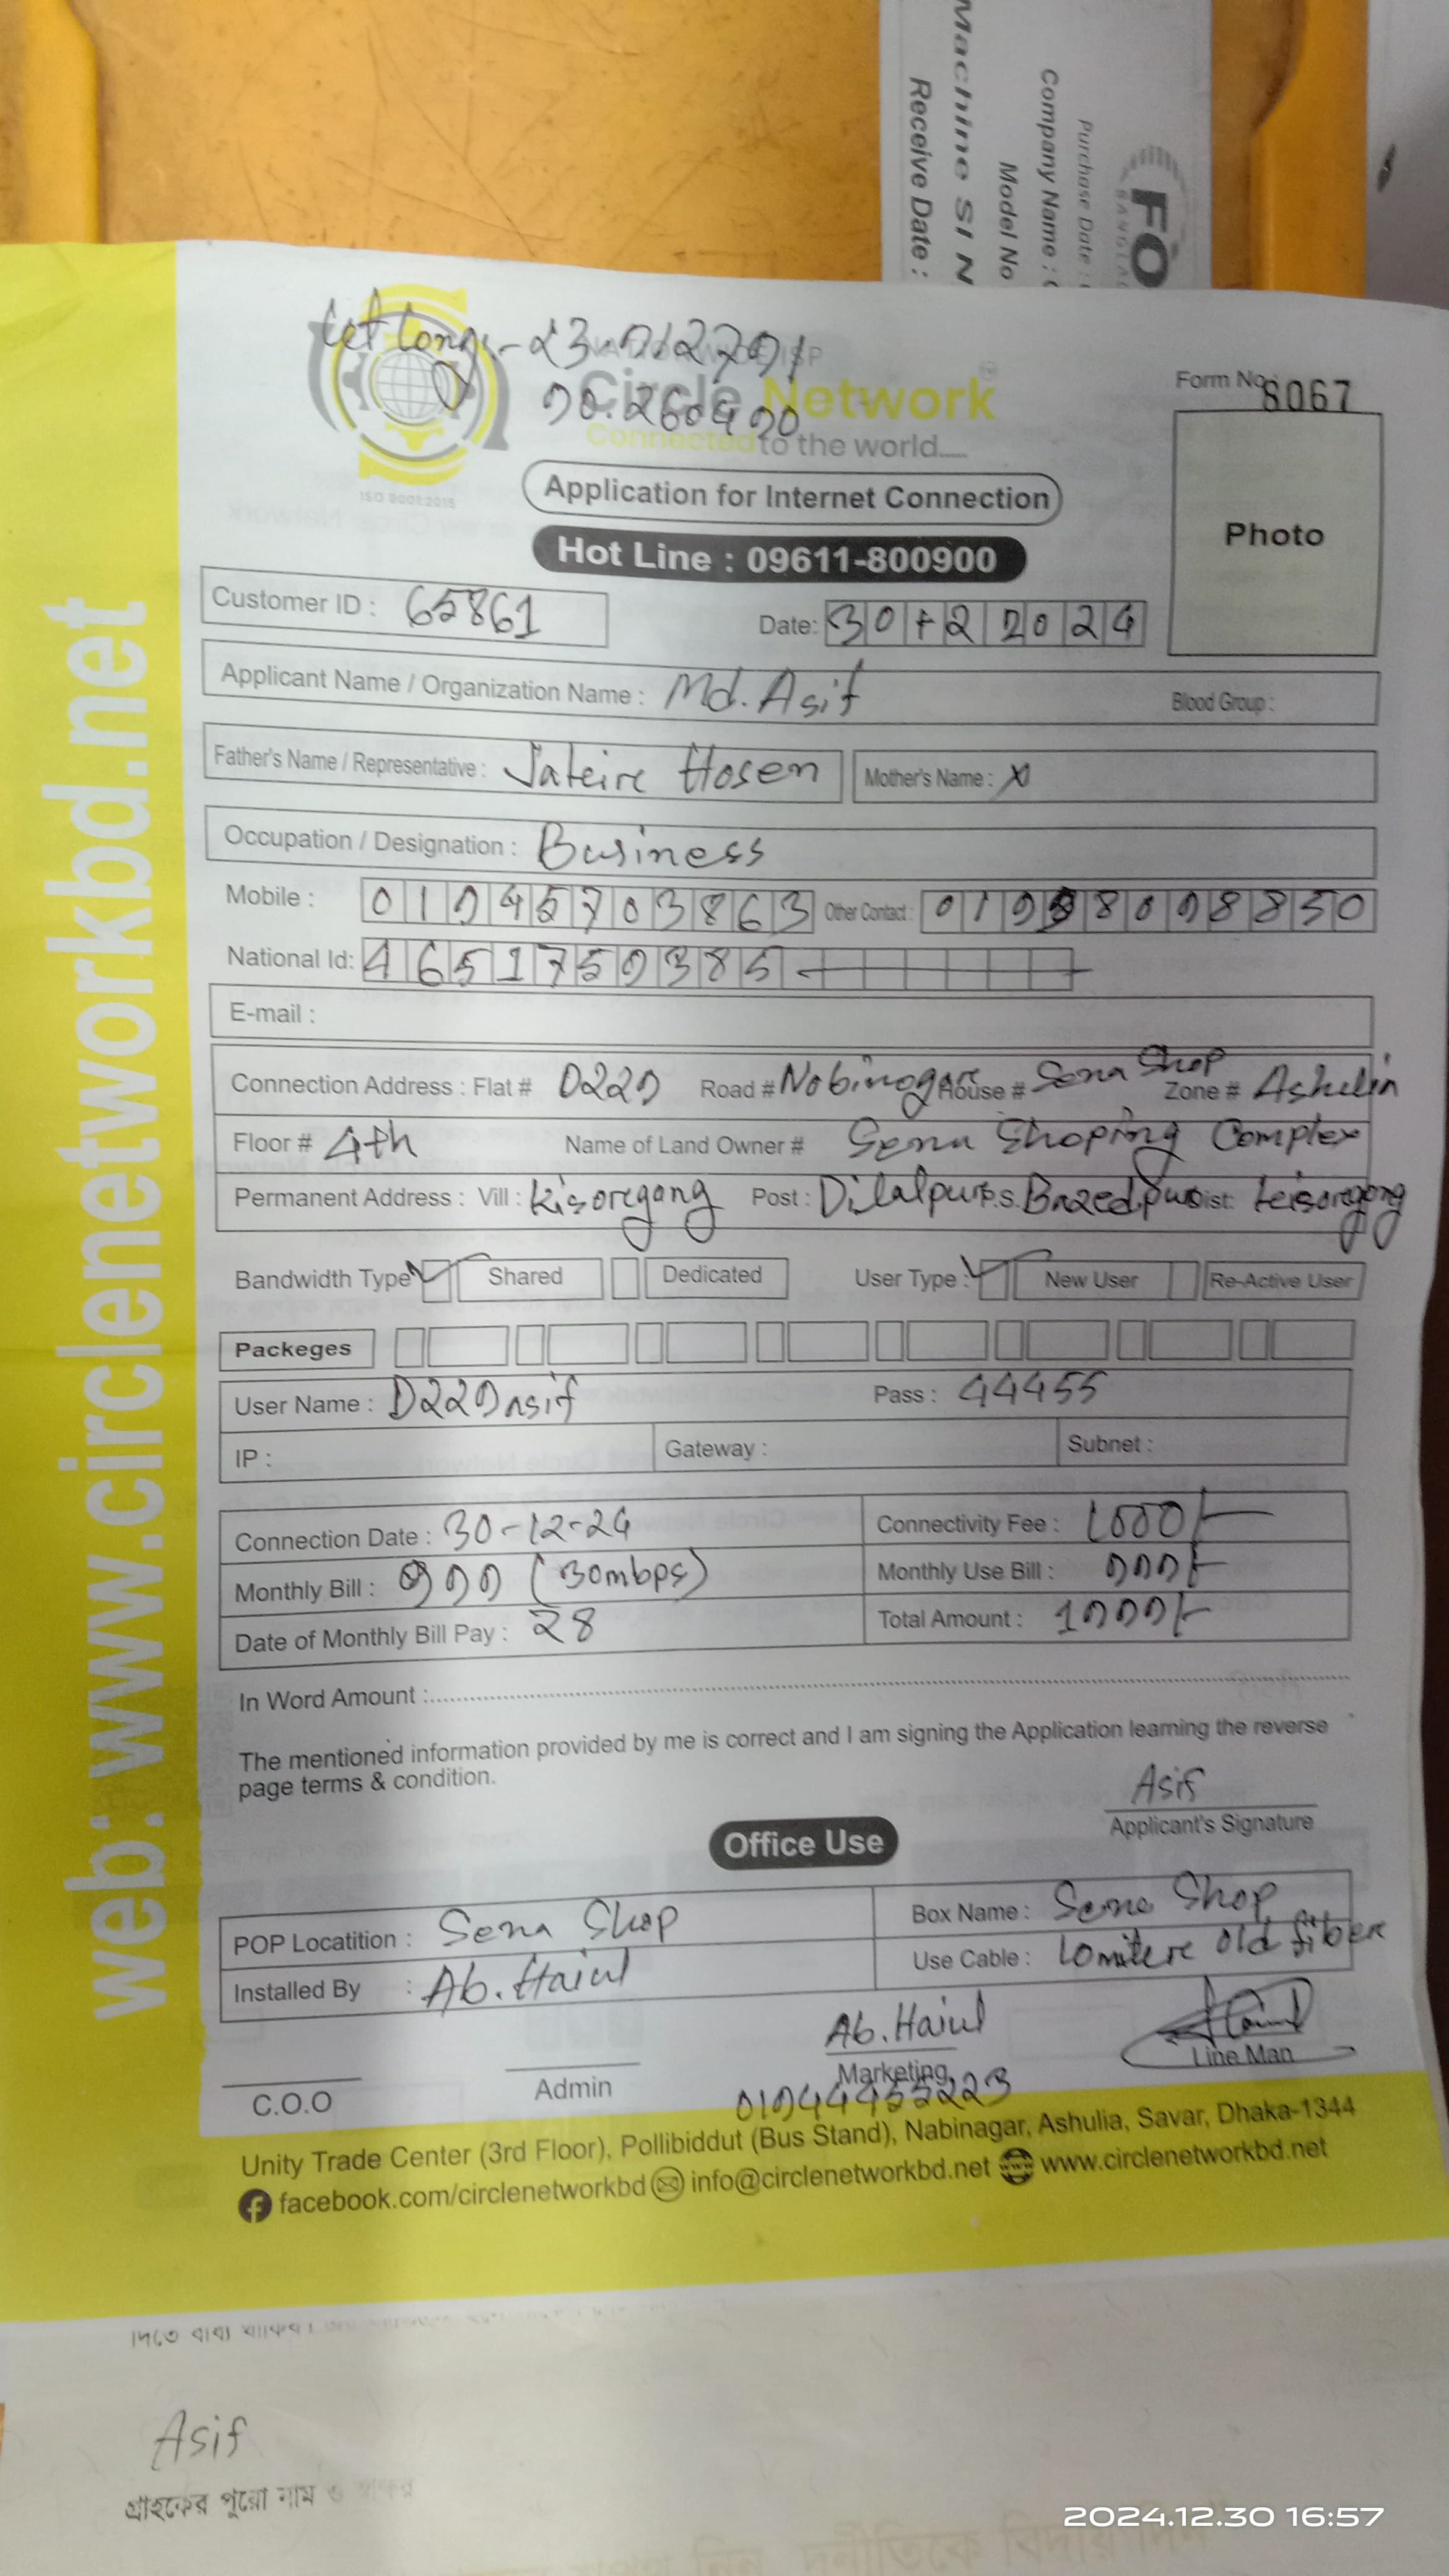 Machine Sl N
Receive Date :
Model No
Company Name :
Purchase Date :
FO
Circle Network
Connected to the world.....
ISO 9001:2015
Form No. 8067
Photo
Application for Internet Connection
Hot Line : 09611-800900
Customer ID : 65861
Date: 30 12 2024
Applicant Name / Organization Name : Md. Asif
Blood Group :
Father's Name / Representative : Hosen
Mother's Name : X
Occupation / Designation : Business
Mobile : 01945703863 Other Contact :
National Id: 4651759385
E-mail :
Connection Address : Flat # D229 Road # Nobinogar House # Sena Shop Zone # Ashulia
Floor # 4th Name of Land Owner # Sena Shoping Complex
Permanent Address : Vill : Kisoregang Post : Dilalpur P.S. Bazedpur Dist: Keisoregong
Bandwidth Type Shared Dedicated User Type : New User Re-Active User
Packeges
User Name : D229asif Pass : 44455
IP : Gateway : Subnet :
Connection Date : 30-12-24 Connectivity Fee : 1000/-
Monthly Bill : 999 (30mbps) Monthly Use Bill : 999/-
Date of Monthly Bill Pay : 28 Total Amount : 1999/-
In Word Amount :
The mentioned information provided by me is correct and I am signing the Application learning the reverse
page terms & condition.
Asif
Applicant's Signature
Office Use
POP Locatition : Sena Shop Box Name : Sena Shop
Installed By : Ab. Haiul Use Cable : old fiber
Ab. Haiul
C.O.O Admin Marketing Line Man
01944455223
Unity Trade Center (3rd Floor), Pollibiddut (Bus Stand), Nabinagar, Ashulia, Savar, Dhaka-1344
facebook.com/circlenetworkbd info@circlenetworkbd.net www.circlenetworkbd.net
web: www.circlenetworkbd.net
Asif
গ্রাহকের পুরো নাম ও
2024.12.30 16:57